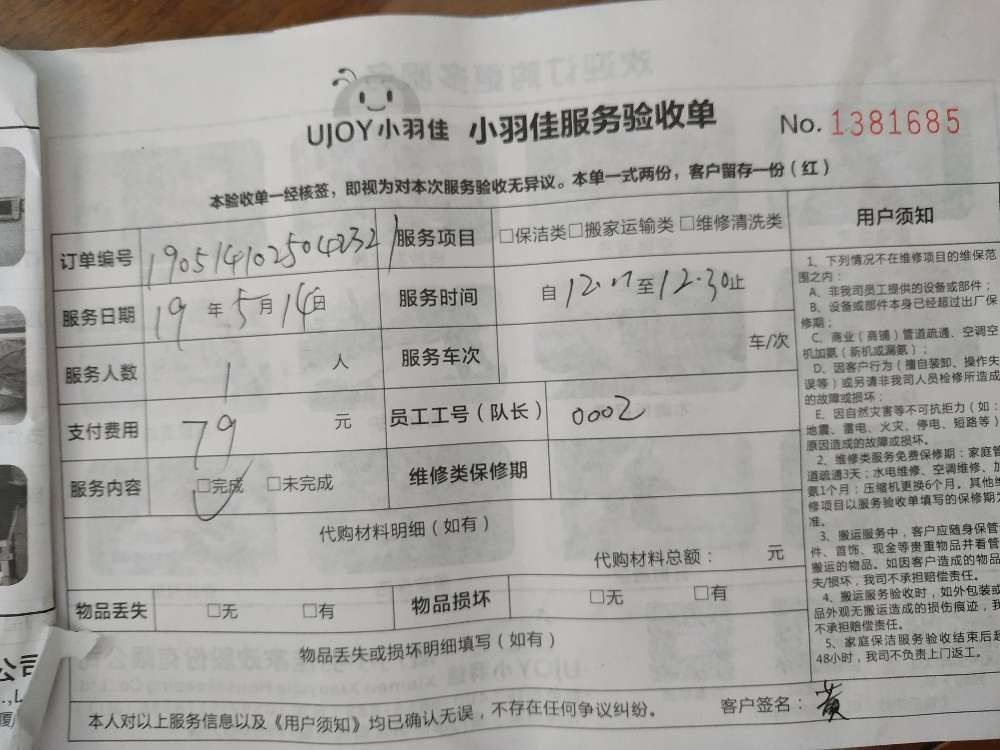 UJOY小羽佳 小羽佳服务验收单 No. 1381685
本验收单一经核签，即视为对本次服务验收无异议。本单一式两份，客户留存一份（红）
订单编号 190514102504232 服务项目 □保洁类□搬家运输类 □维修清洗类
服务日期 19 年 5 月 14 日 服务时间 自 至 12.30 止
服务人数 1 人 服务车次 车/次
支付费用 79 元 员工工号（队长） 0002
服务内容 □完成 □未完成 维修类保修期
代购材料明细（如有）
代购材料总额： 元
物品丢失 □无 □有 物品损坏 □无 □有
物品丢失或损坏明细填写（如有）
本人对以上服务信息以及《用户须知》均已确认无误，不存在任何争议纠纷。 客户签名：黄
用户须知
1、下列情况不在维修项目的维保范
围之内：
A、非我司员工提供的设备或部件；
B、设备或部件本身已经超过出厂保
修期；
C、商业（商铺）管道疏通、空调空
机加氨（新机或漏氨）；
D、因客户行为（擅自装卸、操作失
误等）或另请非我司人员检修所造成
的故障或损坏；
E、因自然灾害等不可抗拒力（如：
地震、雷电、火灾、停电、短路等）
原因造成的故障或损坏。
2、维修类服务免费保修期：家庭管
道疏通3天；水电维修、空调维修、加
氨1个月；压缩机更换6个月。其他维
修项目以服务验收单填写的保修期为
准。
3、搬运服务中，客户应随身保管
件、首饰、现金等贵重物品并看管
搬运的物品。如因客户造成的物品
失/损坏，我司不承担赔偿责任。
4、搬运服务验收时，如外包装或
品外观无搬运造成的损伤痕迹，我
不承担赔偿责任。
5、家庭保洁服务验收结束后超
48小时，我司不负责上门返工。
公司